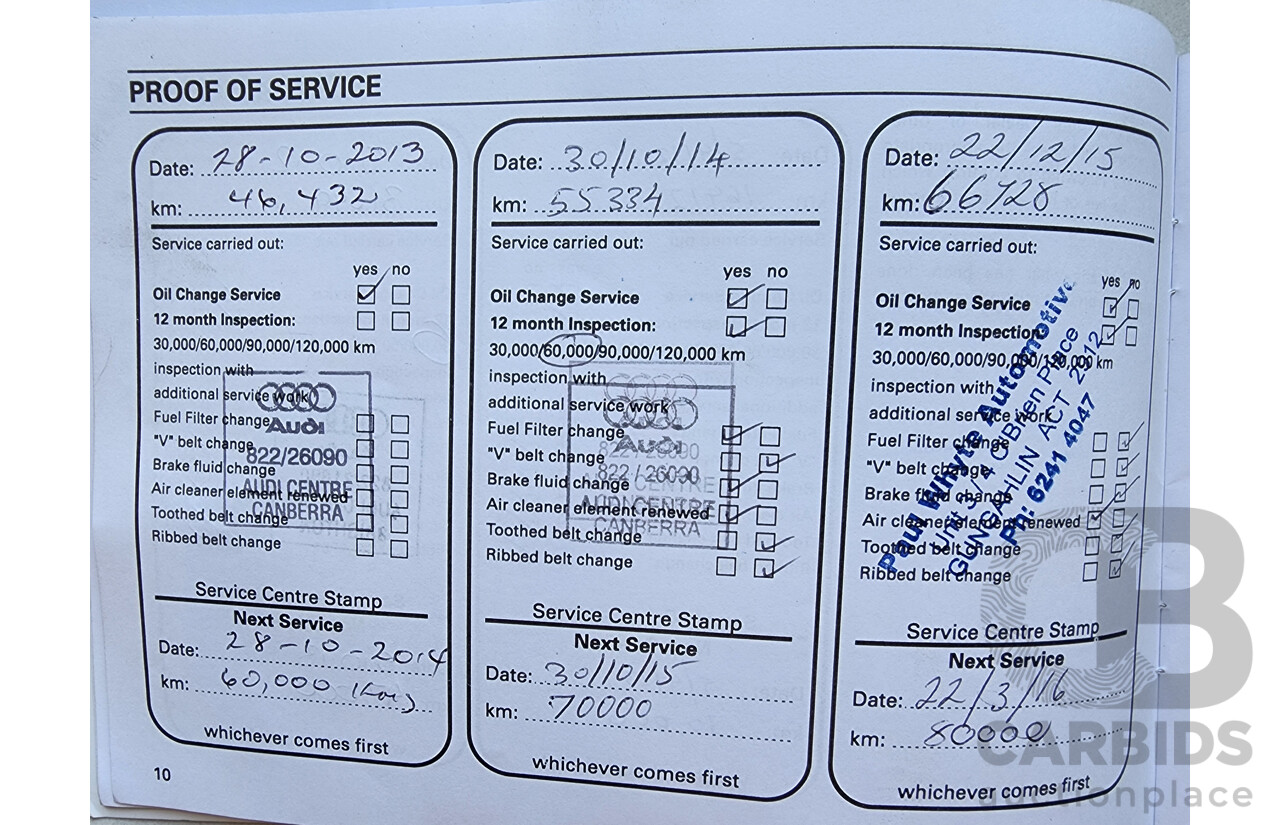 PROOF OF SERVICE
Date: 28-10-2013
km: 46,432
Service carried out:
yes no
Oil Change Service
12 month Inspection:
30,000/60,000/90,000/120,000 km
inspection with
additional service work
Fuel Filter change
"V" belt change
Brake fluid change
Air cleaner element renewed
Toothed belt change
Ribbed belt change
Audi
822/26090
AUDI CENTRE
CANBERRA
Service Centre Stamp
Next Service
Date: 28-10-2014
km: 60,000 Kms
whichever comes first
10
Date: 30/10/14
km: 55334
Service carried out:
yes no
Oil Change Service
12 month Inspection:
30,000/60,000/90,000/120,000 km
inspection with
additional service work
Fuel Filter change
"V" belt change
Brake fluid change
Air cleaner element renewed
Toothed belt change
Ribbed belt change
Audi
822/26090
822/26090
AUDI CENTRE
AUDI CENTRE
CANBERRA
Service Centre Stamp
Next Service
Date: 30/10/15
km: 70000
whichever comes first
Date: 22/12/15
km: 66728
Service carried out:
yes no
Oil Change Service
12 month Inspection:
30,000/60,000/90,000/120,000 km
inspection with
additional service work
Fuel Filter change
"V" belt change
Brake fluid change
Air cleaner element renewed
Toothed belt change
Ribbed belt change
Paul Whyte Automotive
O'Brien Place
GUNGAHLIN ACT 2912
Ph: 6241 4047
Service Centre Stamp
Next Service
Date: 22/3/16
km: 80000
whichever comes first
CB
CARBIDS
auctionplace